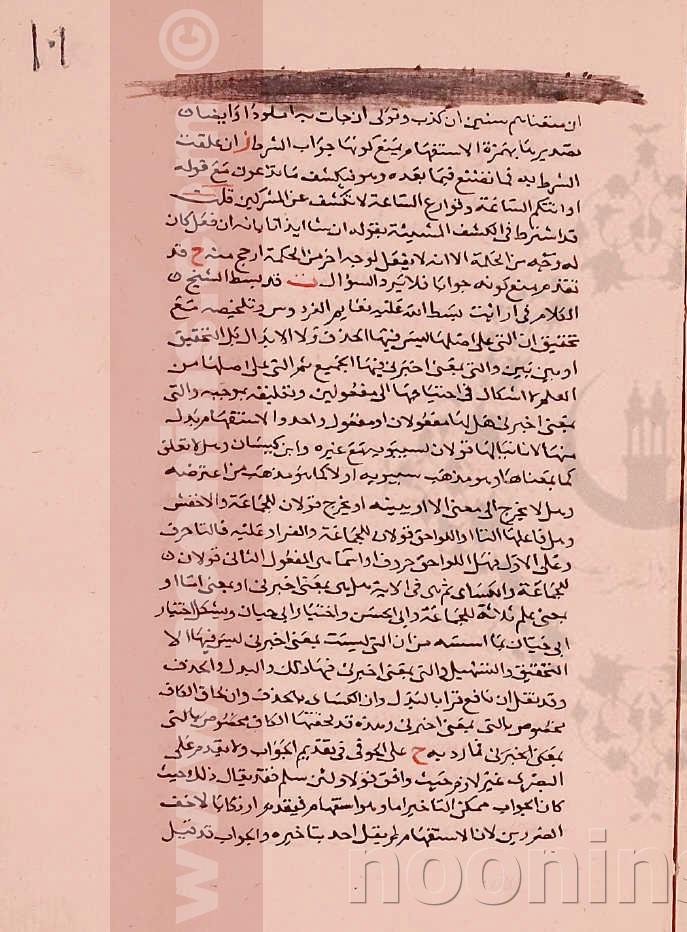 ١٠١
ان متعناهم سنين ان كذب وتولى ان جات به املودا وايضا
تصديرها بهمزة الاستفهام يمنع كونها جواب الشرط ان علقت
الشرط به فما تصنع فيما بعده وهو فيكشف ما تدعون مع قوله
او اتتكم الساعة وقوارع الساعة لا تكشف عن المشركين قلت
قد اشترط في الكشف المشيئة بقوله ان شا ايذانا بانه ان فعل كان
له وجه من الحكمة الا انه لا يفعل لوجه اخر من الحكمة ارجح منه ح قد
تقدم منع كونه جوابا فلا يرد السؤال قد بسط الشيخ
الكلام في ارايت بسط الله عليه نعايم الفردوس وتلخيصه مع
تحقيق ان التي على اصلها ليس فيها الحذف ولا الابدال بل التحقيق
او بين بين والتي بمعنى اخبرني فيها الجميع ثم التي على اصلها من
العلم لا اشكال في احتياجها الى مفعولين وتعليقه بموجبه والتي
بمعنى اخبرني هل لها مفعولان او مفعول واحد والاستفهام بدله
منها قولان لسيبويه مع غيره وابن كيسان وهل لا تعلق
كما بمعناها وهو مذهب سيبويه اولا كما هو مذهب من اعترضه
وهل لا يخرج الى معنى اما او يخرج قولان للجماعة والاخفش
وهل فاعلها التا او اللواحق قولان للجماعة والفراء وعليه فالتا حرف
وعلى الاول فهل اللواحق حروف او اسما هي المفعول الثاني قولان
للجماعة والكساى ثم هي في الاية هل هي بمعنى اخبرني او بمعنى اما او
بمعنى علم ثلاثة للجماعة وابي الحسن واختيار ابي حيان ويشكل اختيار
ابي حيان بما اسسه من ان التي ليست بمعنى اخبرني ليس فيها الا
التحقيق والتسهيل والتي بمعنى اخبرني فيها ذلك والبدل والحذف
وقد نقل ان نافع قرا بالبدل وان الكساى بالحذف وان لحاق الكاف
مخصوص بالتي بمعنى اخبرني وهذه قد لحقتها الكاف مخصوص بالتي
بمعنى اخبرني فما رد به ح على الحوفي في تقديم الجواب ولا يقدم على
البصري غير لازم حيث وافق قولا ولئن سلم فقد يقال ذلك حيث
كان الجواب ممكن التاخير اما وهو استفهام فيقدم ارتكابا لاخف
الضررين لان الاستفهام لم يقل احد بتاخيره والجواب قد قيل
www.
noonin